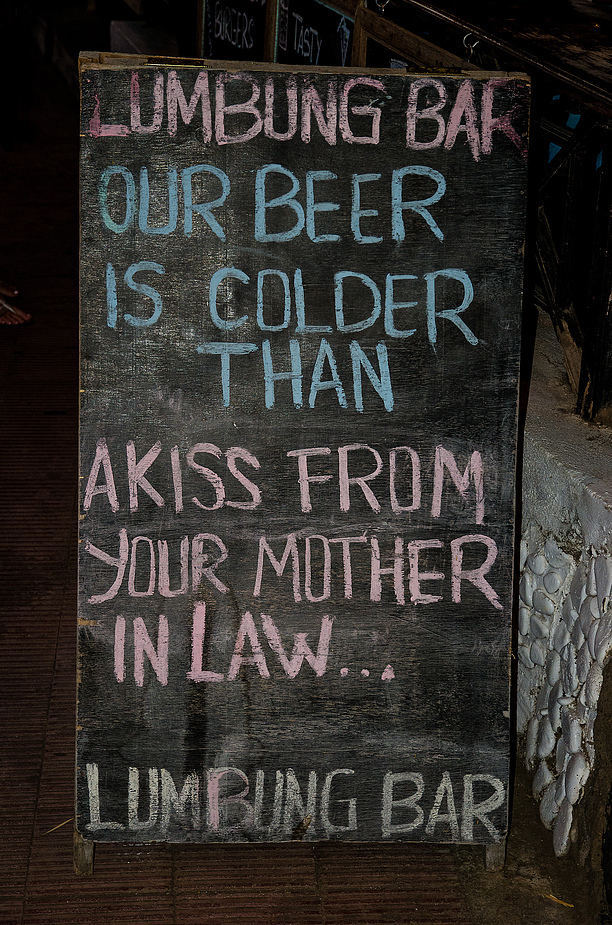 BURGERS
TASTY
LUMBUNG BAR
OUR BEER
IS COLDER
THAN
A KISS FROM
YOUR MOTHER
IN LAW...
LUMBUNG BAR